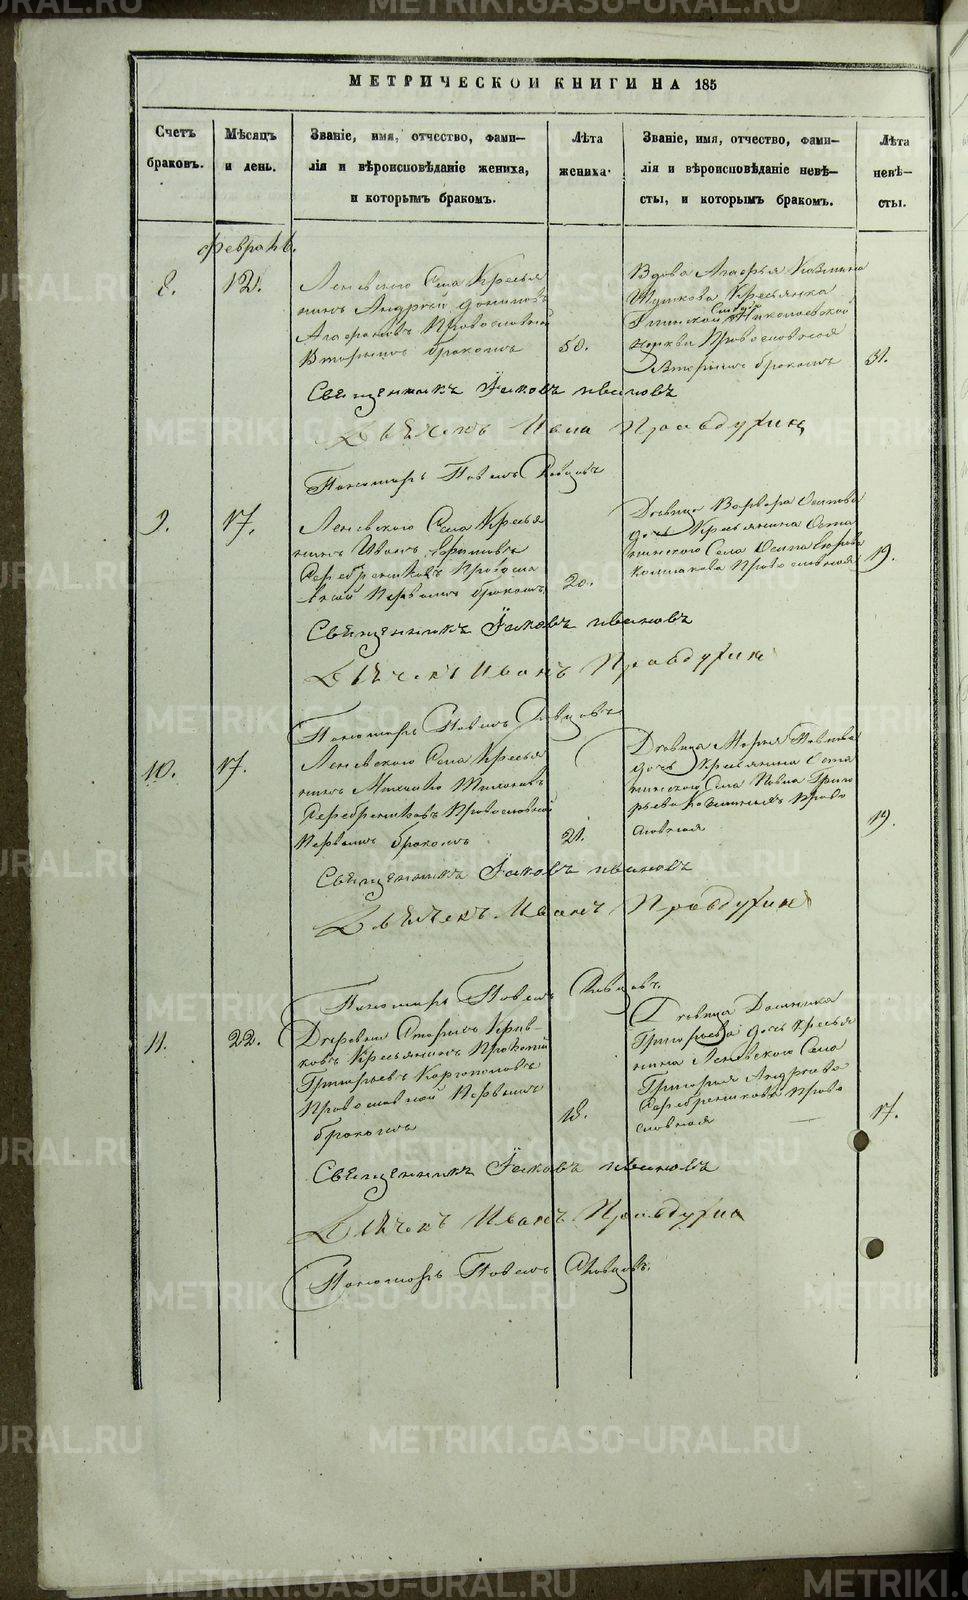 МЕТРИЧЕСКОЙ КНИГИ НА 185
Счетъ браковъ.
Мѣсяцъ и день.
Званіе, имя, отчество, фами-
лія и вѣроисповѣданіе жениха,
и которымъ бракомъ.
Лѣта
жениха.
Званіе, имя, отчество, фами-
лія и вѣроисповѣданіе невѣ-
сты, и которымъ бракомъ.
Лѣта
невѣ-
сты.
Февраль.
8.
12.
Леневского Села Кресья
нинъ Андрей
Агафоновъ Православный
Вторымъ бракомъ
50.
Вдова Агафья
Кресьянка
Николаевской
церкви Православная
Вторымъ бракомъ
51.
Священникъ Іаковъ Ивановъ
Дьячекъ Иванъ Правдухинъ
Пономарь Павелъ
9.
17.
Леневского Села Кресья
нинъ Иванъ
Серебрениковъ Правосла
вной Первымъ бракомъ
20.
Дѣвица Варвара Осипова
дочь Кресьянина Оста
нинского Села Осипа
Православная
19.
Священникъ Іаковъ Ивановъ
Дьячекъ Иванъ Правдухинъ
Пономарь Павелъ
10.
17.
Леневского Села Кресья
нинъ Михайло Тихоновъ
Серебрениковъ Православный
Первымъ бракомъ
21.
Дѣвица Марья Павлова
дочь Кресьянина Оста
нинского Села Павла Григо
рьева Право
славная
19.
Священникъ Іаковъ Ивановъ
Дьячекъ Иванъ Правдухинъ
Пономарь Павелъ
11.
22.
Деревни Старыхъ Крив-
ковъ Кресьянинъ Прокопий
Григорьевъ Каргополовъ
Православной Первымъ
бракомъ
18.
Дѣвица Домника
Григорьева дочь Кресья
нина Леневского Села
Григорья Андреева
Серебреникова Право
славная
17.
Священникъ Іаковъ Ивановъ
Дьячекъ Иванъ Правдухинъ
Пономарь Павелъ
METRIKI.GASO-URAL.RU